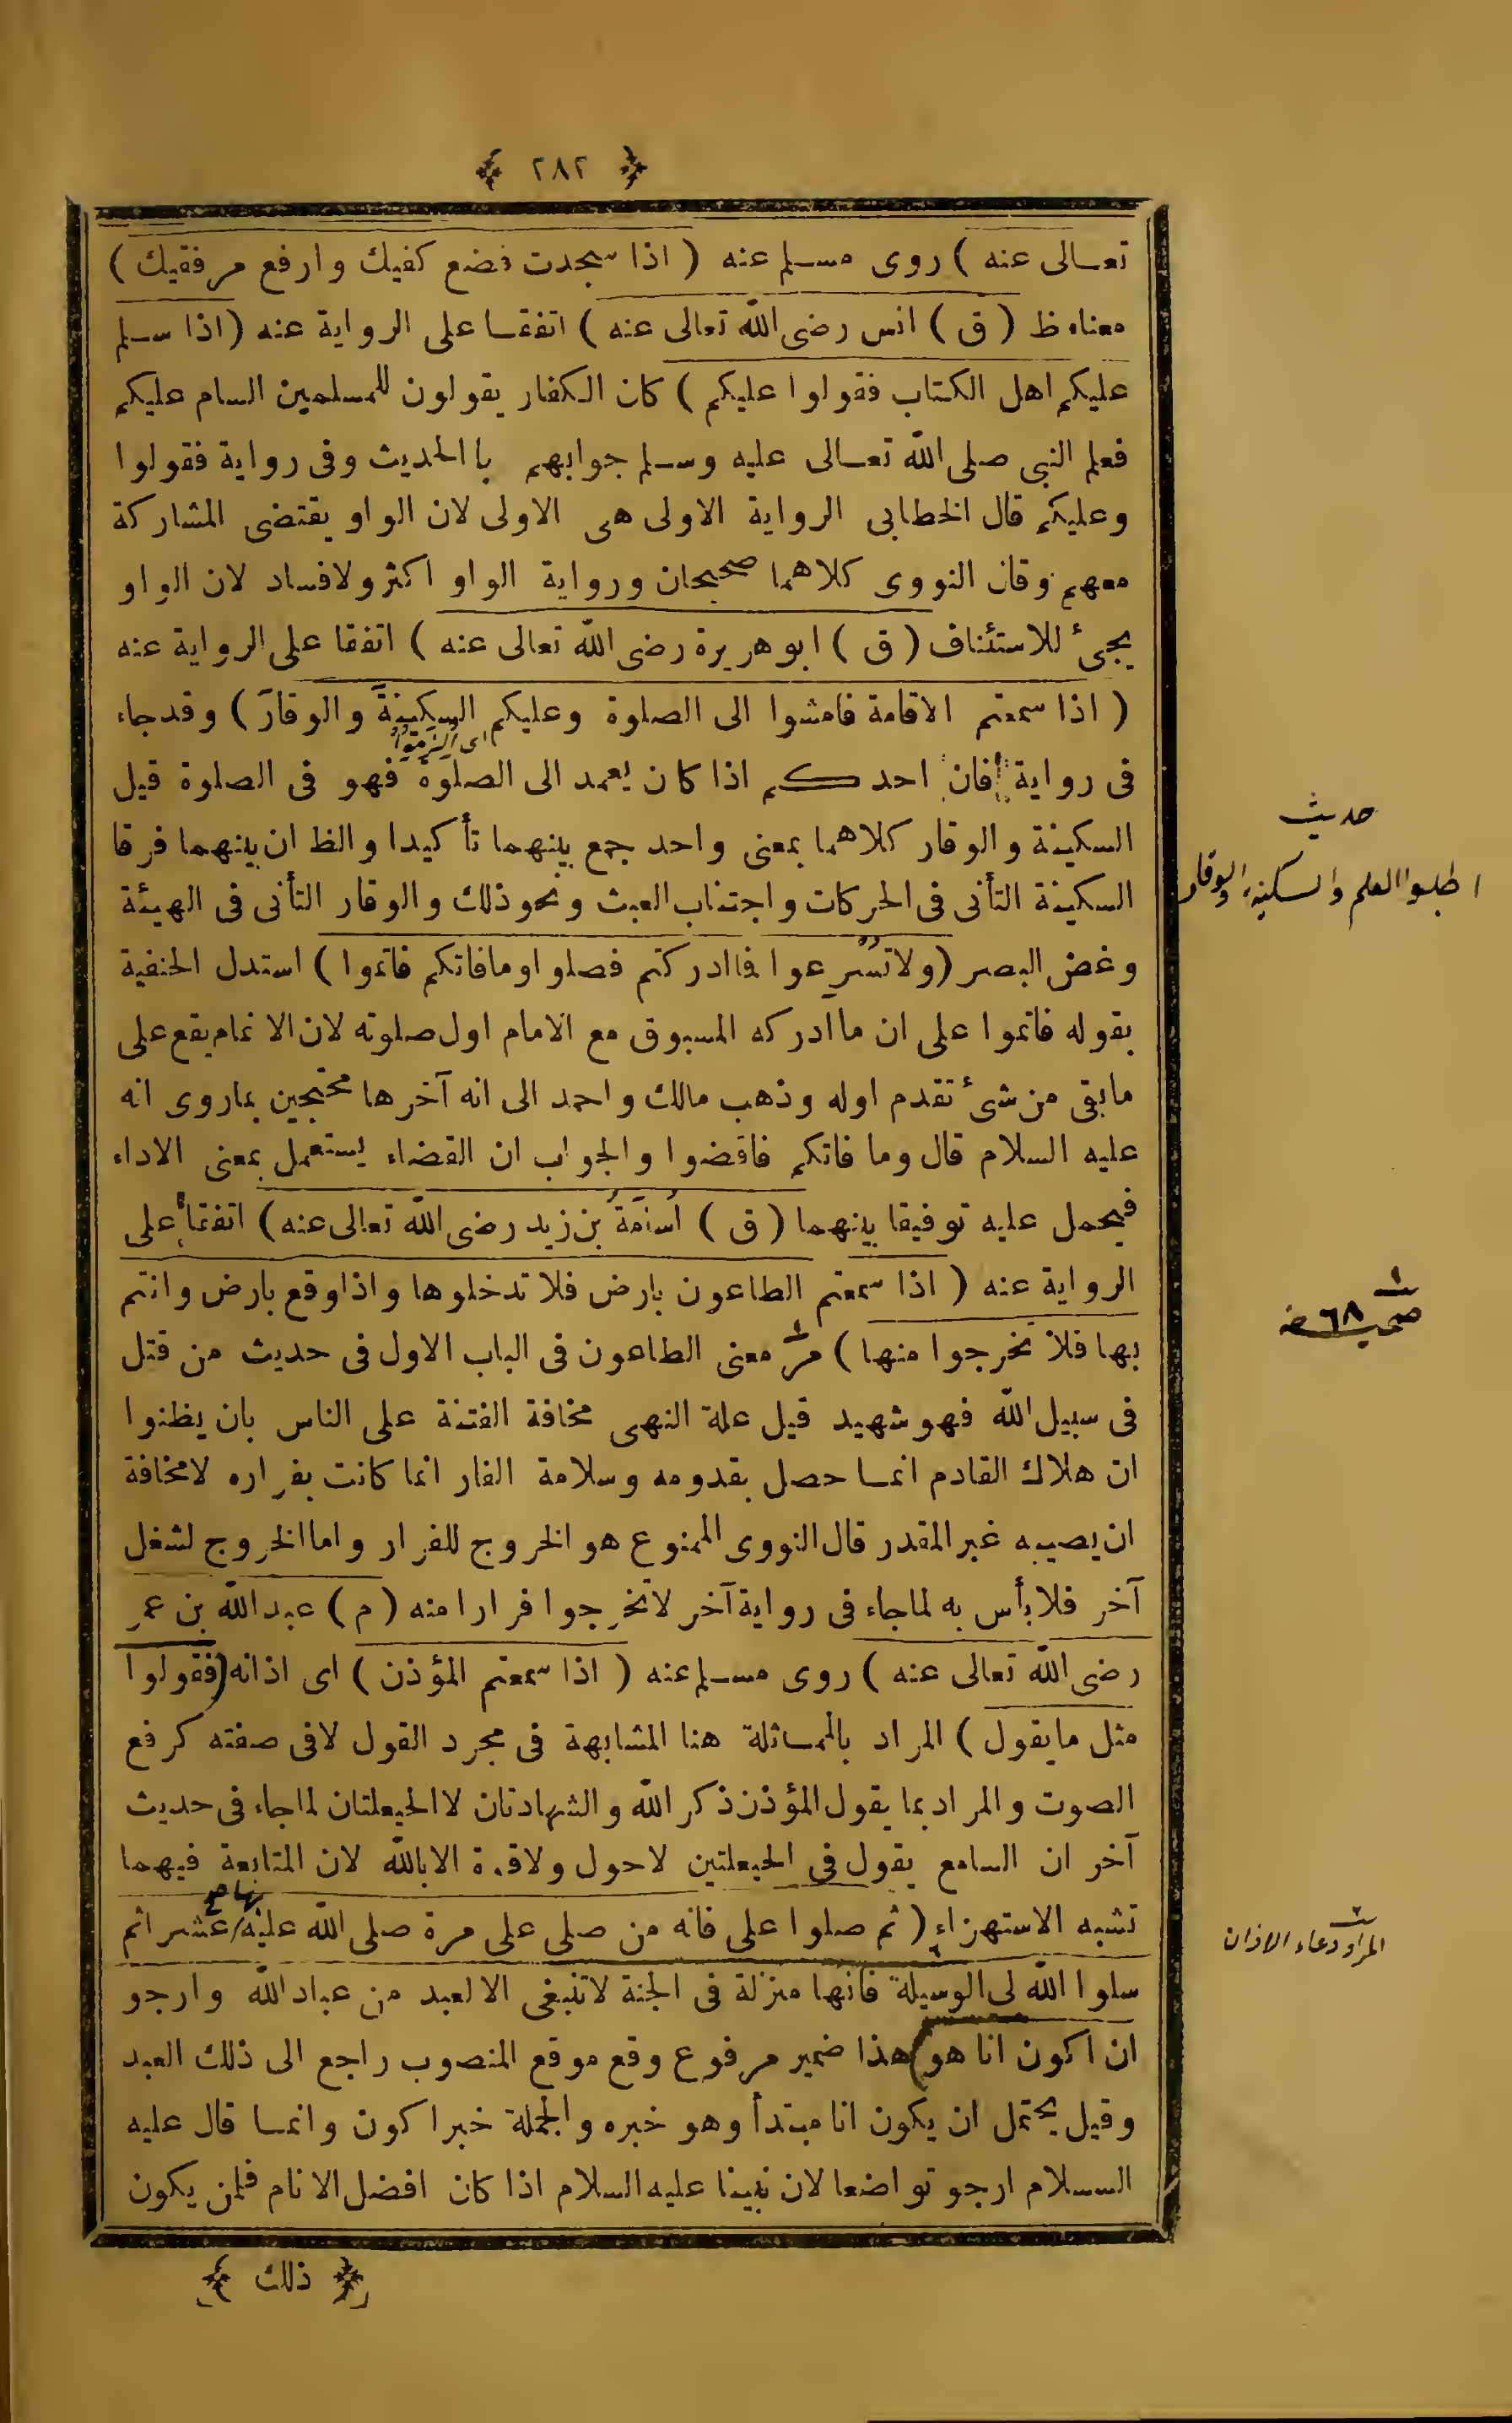 ﴿ ٢٨٢ ﴾
تعالى عنه ) روى مسلم عنه ( اذا سجدت فضع كفيك وارفع مرفقيك )
معناه ظ ( ق ) انس رضى الله تعالى عنه ) اتفقا على الرواية عنه ( اذا سلم
عليكم اهل الكتاب فقولوا عليكم ) كان الكفار يقولون للمسلمين السام عليكم
فعلم النبى صلى الله تعالى عليه وسلم جوابهم باالحديث وفى رواية فقولوا
وعليكم قال الخطابى الرواية الاولى هى الاولى لان الواو يقتضى المشاركة
معهم وقال النووى كلاهما صحيحان ورواية الواو اكثر ولافساد لان الواو
يجئ للاستئناف ( ق ) ابوهريرة رضى الله تعالى عنه ) اتفقا على الرواية عنه
( اذا سمعتم الاقامة فامشوا الى الصلوة وعليكم السكينةَ والوقارَ ) وقدجاء
اى الزموا
فى رواية فان احدكم اذا كان يعمد الى الصلوة فهو فى الصلوة قيل
السكينة والوقار كلاهما بمعنى واحد جمع بينهما تأكيدا والظ ان بينهما فرقا
السكينة التأنى فى الحركات واجتناب العبث ونحو ذلك والوقار التأنى فى الهيئة
وغض البصر ( ولا تُسْرِعوا فاادركتم فصلوا ومافاتكم فاتموا ) استدل الحنفية
بقوله فاتموا على ان ماادركه المسبوق مع الامام اول صلوته لان الاتمام يقع على
مابقى من شئ تقدم اوله وذهب مالك واحمد الى انه آخرها محتجين بماروى انه
عليه السلام قال وما فاتكم فاقضوا والجواب ان القضاء يستعمل بمعنى الاداء
فيحمل عليه توفيقا بينهما ( ق ) اُسَامَةُ بن زيد رضى الله تعالى عنه ) اتفقا على
الرواية عنه ( اذا سمعتم الطاعون بارض فلا تدخلوها واذاوقع بارض وانتم
بها فلا تخرجوا منها ) مرّ معنى الطاعون فى الباب الاول فى حديث من قتل
فى سبيل الله فهو شهيد قيل علة النهى مخافة الفتنة على الناس بان يظنوا
ان هلاك القادم انما حصل بقدومه وسلامة الفار انما كانت بفراره لامخافة
ان يصيبه غير المقدر قال النووى الممنوع هو الخروج للفرار واما الخروج لشغل
آخر فلا بأس به لماجاء فى رواية آخر لاتخرجوا فرارا منه ( م ) عبدالله بن عمر
رضى الله تعالى عنه ) روى مسلم عنه ( اذا سمعتم المؤذن ) اى اذانه ( فقولوا
مثل مايقول ) المراد بالمماثلة هنا المشابهة فى مجرد القول لافى صفته كرفع
الصوت والمراد بما يقول المؤذن ذكر الله والشهادتان لا الحيعلتان لماجاء فى حديث
آخر ان السامع يقول فى الحيعلتين لاحول ولاقوة الابالله لان المتابعة فيهما
تشبه الاستهزاء ( ثم صلوا على فانه من صلى على مرة صلى الله عليه / عشرا ثم
بها صح
سلوا الله لى الوسيلة فانها منزلة فى الجنة لاتنبغى الا لعبد من عباد الله وارجو
ان اكون انا هو ) هذا ضمير مرفوع وقع موقع المنصوب راجع الى ذلك العبد
وقيل يحتمل ان يكون انا مبتدأ وهو خبره والجملة خبرا كون وانما قال عليه
السسلام ارجو تواضعا لان نبينا عليه السلام اذا كان افضل الانام فلمن يكون
﴿ ذلك ﴾
حديث
اطلبوا العلم والسكينة والوقار
١
صحيفه ٦٨
٢
المراد دعاء الاذان